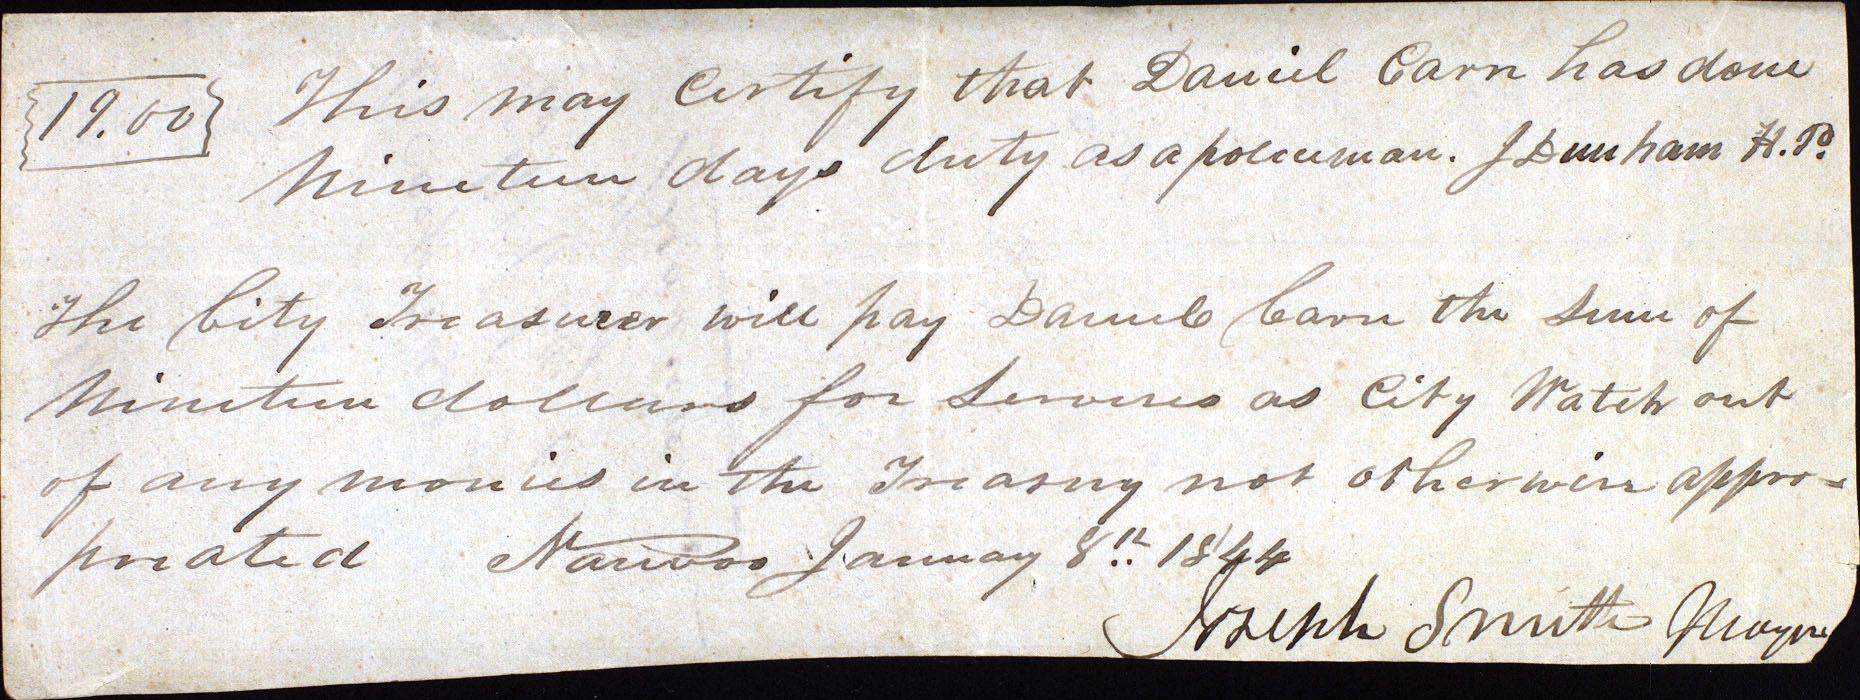 19.00 This may Certify that Daniel Carn has done
Nineteen days duty as a policeman. J Dunham H.P.
The City Treasurer will pay Daniel Carn the Sum of
Nineteen dollars for Services as City Watch out
of any monies in the Treasury not otherwise appro-
priated Nauvoo January 8th 1844
Joseph Smith Mayor